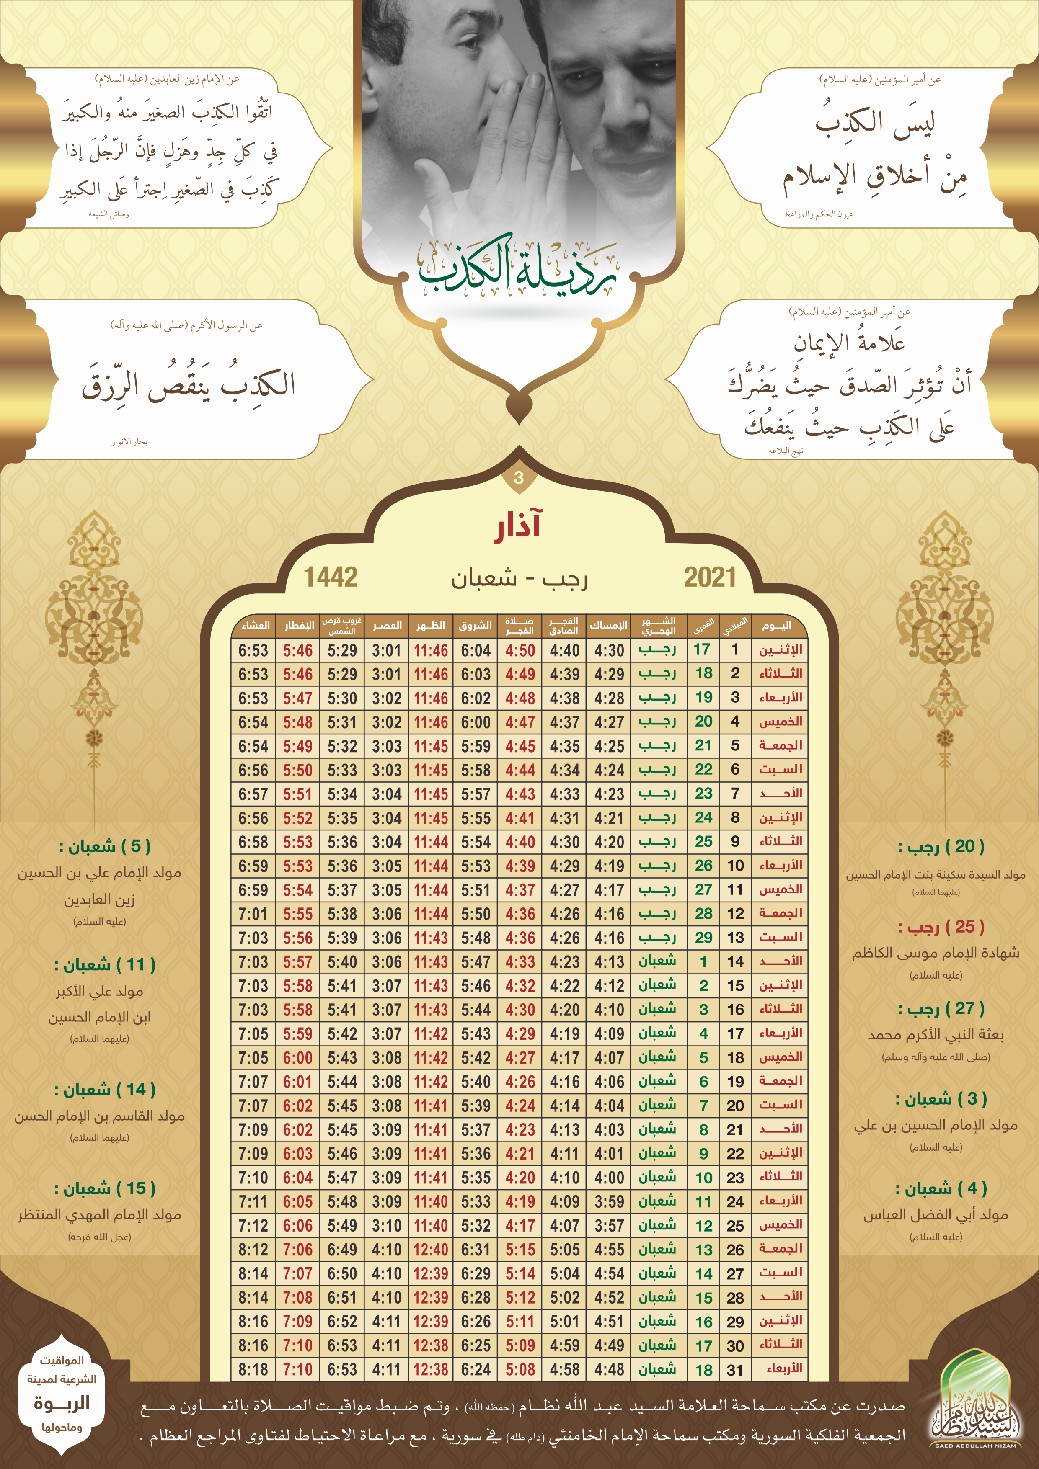 عن أمير المؤمنين (عليه السلام)
ليسَ الكذِبُ
مِنْ أخلاقِ الإسلام
عيون الحكم والمواعظ
عن الإمام زين العابدين (عليه السلام)
اتّقُوا الكذِبَ الصغيرَ منهُ والكبيرَ
في كلِّ جِدٍّ وهَزلٍ فإنَّ الرّجُلَ إذا
كَذِبَ في الصّغيرِ اِجترأ عَلى الكبيرِ
وسائل الشيعة
رذيلة الكذب
عن أمير المؤمنين (عليه السلام)
عَلامةُ الإيمانِ
أنْ تُؤثِرَ الصّدقَ حيثُ يَضُرُّكَ
عَلى الكَذِبِ حيثُ يَنفعُكَ
نهج البلاغة
عن الرسول الأكرم (صلى الله عليه وآله)
الكذِبُ يَنقُصُ الرِّزقَ
بحار الانوار
3
آذار
2021 رجب - شعبان 1442
اليوم الميلادي القمري الشهر الهجري الإمساك الفجر الصادق صلاة الفجر الشروق الظهر العصر غروب قرص الشمس الإفطار العشاء
الإثنين 1 17 رجب 4:30 4:40 4:50 6:04 11:46 3:01 5:29 5:46 6:53
الثلاثاء 2 18 رجب 4:29 4:39 4:49 6:03 11:46 3:01 5:29 5:46 6:53
الأربعاء 3 19 رجب 4:28 4:38 4:48 6:02 11:46 3:02 5:30 5:47 6:53
الخميس 4 20 رجب 4:27 4:37 4:47 6:00 11:46 3:02 5:31 5:48 6:54
الجمعة 5 21 رجب 4:25 4:35 4:45 5:59 11:45 3:03 5:32 5:49 6:54
السبت 6 22 رجب 4:24 4:34 4:44 5:58 11:45 3:03 5:33 5:50 6:56
الأحد 7 23 رجب 4:23 4:33 4:43 5:57 11:45 3:04 5:34 5:51 6:57
الإثنين 8 24 رجب 4:21 4:31 4:41 5:55 11:45 3:04 5:35 5:52 6:56
الثلاثاء 9 25 رجب 4:20 4:30 4:40 5:54 11:44 3:04 5:36 5:53 6:58
الأربعاء 10 26 رجب 4:19 4:29 4:39 5:53 11:44 3:05 5:36 5:53 6:59
الخميس 11 27 رجب 4:17 4:27 4:37 5:51 11:44 3:05 5:37 5:54 6:59
الجمعة 12 28 رجب 4:16 4:26 4:36 5:50 11:44 3:06 5:38 5:55 7:01
السبت 13 29 رجب 4:16 4:26 4:36 5:48 11:43 3:06 5:39 5:56 7:03
الأحد 14 1 شعبان 4:13 4:23 4:33 5:47 11:43 3:06 5:40 5:57 7:03
الإثنين 15 2 شعبان 4:12 4:22 4:32 5:46 11:43 3:07 5:41 5:58 7:03
الثلاثاء 16 3 شعبان 4:10 4:20 4:30 5:44 11:43 3:07 5:41 5:58 7:03
الأربعاء 17 4 شعبان 4:09 4:19 4:29 5:43 11:42 3:07 5:42 5:59 7:05
الخميس 18 5 شعبان 4:07 4:17 4:27 5:42 11:42 3:08 5:43 6:00 7:05
الجمعة 19 6 شعبان 4:06 4:16 4:26 5:40 11:42 3:08 5:44 6:01 7:07
السبت 20 7 شعبان 4:04 4:14 4:24 5:39 11:41 3:08 5:45 6:02 7:07
الأحد 21 8 شعبان 4:03 4:13 4:23 5:37 11:41 3:09 5:45 6:02 7:09
الإثنين 22 9 شعبان 4:01 4:11 4:21 5:36 11:41 3:09 5:46 6:03 7:09
الثلاثاء 23 10 شعبان 4:00 4:10 4:20 5:35 11:41 3:09 5:47 6:04 7:10
الأربعاء 24 11 شعبان 3:59 4:09 4:19 5:33 11:40 3:09 5:48 6:05 7:11
الخميس 25 12 شعبان 3:57 4:07 4:17 5:32 11:40 3:10 5:49 6:06 7:12
الجمعة 26 13 شعبان 4:55 5:05 5:15 6:31 12:40 4:10 6:49 7:06 8:12
السبت 27 14 شعبان 4:54 5:04 5:14 6:29 12:39 4:10 6:50 7:07 8:14
الأحد 28 15 شعبان 4:52 5:02 5:12 6:28 12:39 4:10 6:51 7:08 8:14
الإثنين 29 16 شعبان 4:51 5:01 5:11 6:26 12:39 4:11 6:52 7:09 8:16
الثلاثاء 30 17 شعبان 4:49 4:59 5:09 6:25 12:38 4:11 6:53 7:10 8:16
الأربعاء 31 18 شعبان 4:48 4:58 5:08 6:24 12:38 4:11 6:53 7:10 8:18
( 20 ) رجب :
مولد السيدة سكينة بنت الإمام الحسين
(عليهما السلام)
( 25 ) رجب :
شهادة الإمام موسى الكاظم
(عليه السلام)
( 27 ) رجب :
بعثة النبي الأكرم محمد
(صلى الله عليه وآله وسلم)
( 3 ) شعبان :
مولد الإمام الحسين بن علي
(عليه السلام)
( 4 ) شعبان :
مولد أبي الفضل العباس
(عليه السلام)
( 5 ) شعبان :
مولد الإمام علي بن الحسين
زين العابدين
(عليه السلام)
( 11 ) شعبان :
مولد علي الأكبر
ابن الإمام الحسين
(عليهما السلام)
( 14 ) شعبان :
مولد القاسم بن الإمام الحسن
(عليهما السلام)
( 15 ) شعبان :
مولد الإمام المهدي المنتظر
(عجل الله فرجه)
المواقيت
الشرعية لمدينة
الربوة
وماحولها
صدرت عن مكتب سماحة العلامة السيد عبد الله نظام (حفظه الله) ، وتم ضبط مواقيت الصلاة بالتعاون مع
الجمعية الفلكية السورية ومكتب سماحة الإمام الخامنئي (دام ظله) في سورية ، مع مراعاة الاحتياط لفتاوى المراجع العظام .
السيد عبد الله نظام
SAED ABDULLAH NIZAM